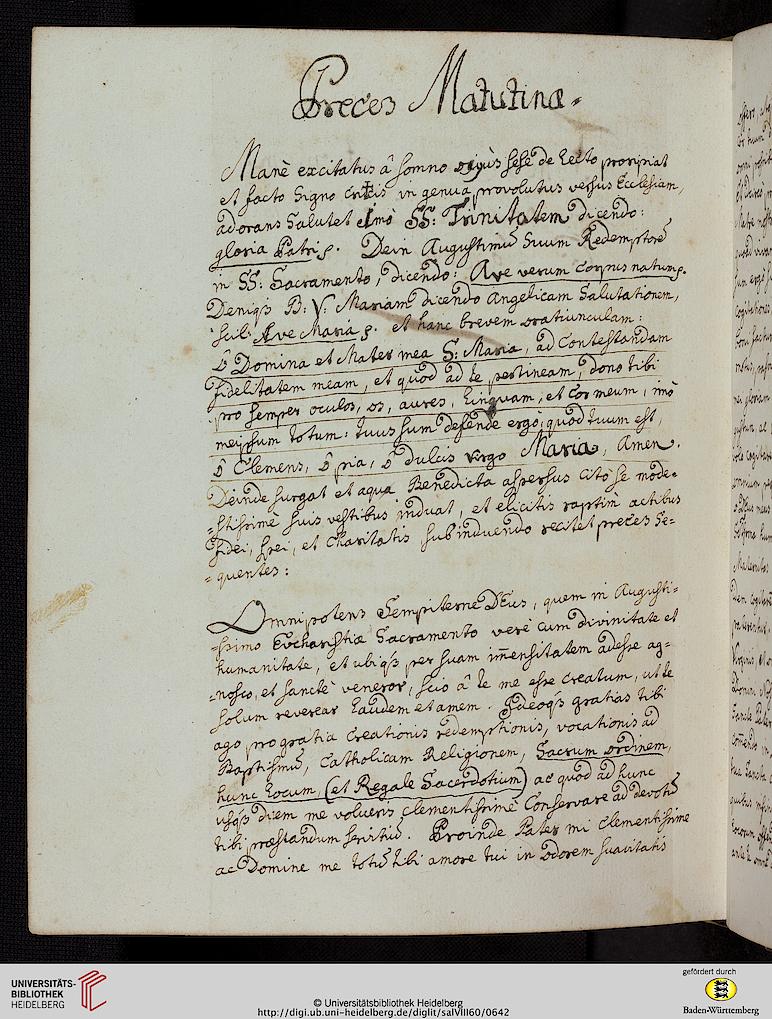 Preces Matutinæ.
Manè excitatus â somno ocyùs sese de lecto proripiat
et facto Signo Crucis in genua provolutus versus Ecclesiam,
adorans Salutet Imò SS: Trinitatem dicendo:
gloria Patri ρ. Dein Augustissimũ Suum Redemptorẽ
in SS: Sacramento, dicẽdo: Ave verum Corpus natum ρ.
Deniqȝ B: V: Mariam dicendo Angelicam Salutationem,
scil: Ave Maria ρ. et hanc brevem oratiunculam:
ô Domina et Mater mea S: Maria, ad Contestandam
fidelitatem meam, et quòd ad te pertineam, dono tibi
pro semper oculos, os, aures, linguam, et Cor meum, imò
meipsum totum: tuus sum defende ergò, quod tuum est,
ô Clemens, ô pia, ô dulcis virgo Maria, Amen.
Deinde surgat et aqua Benedicta aspersus citò se mode=
=stissimè suis vestibus induat, et elicitis raptim actibus
fidei, spei, et Charitatis, sub induendo recitet preces Se=
=quentes:
Omnipotens Sempiterne DEus, quem in Augusti=
=ssimo Eucharistiæ Sacramento verè cum divinitate et
humanitate, et ubiqȝ per suam im̃ensitatem adesse ag=
=nosco, et sanctè veneror, scio â te me esse creatum, ut te
solum reverear laudem et amem. Ideoqȝ gratias tibi
ago pro gratia Creationis redemptionis, vocationis ad
Baptismũ, Catholicam Religionem, Sacrum ordinem,
hunc locum, (et Regale Sacerdotium) ac quòd ad hunc
usqȝ diem me volueris Clementissimè Conservare ad devotũ
tibi præstandum servitiũ. Proinde Pater mi Clementissime
ac Domine me totũ tibi amore tui in odorem suavitatis
UNIVERSITÄTS-
BIBLIOTHEK
HEIDELBERG
© Universitätsbibliothek Heidelberg
http://digi.ub.uni-heidelberg.de/diglit/salVIII60/0642
gefördert durch
Baden-Württemberg